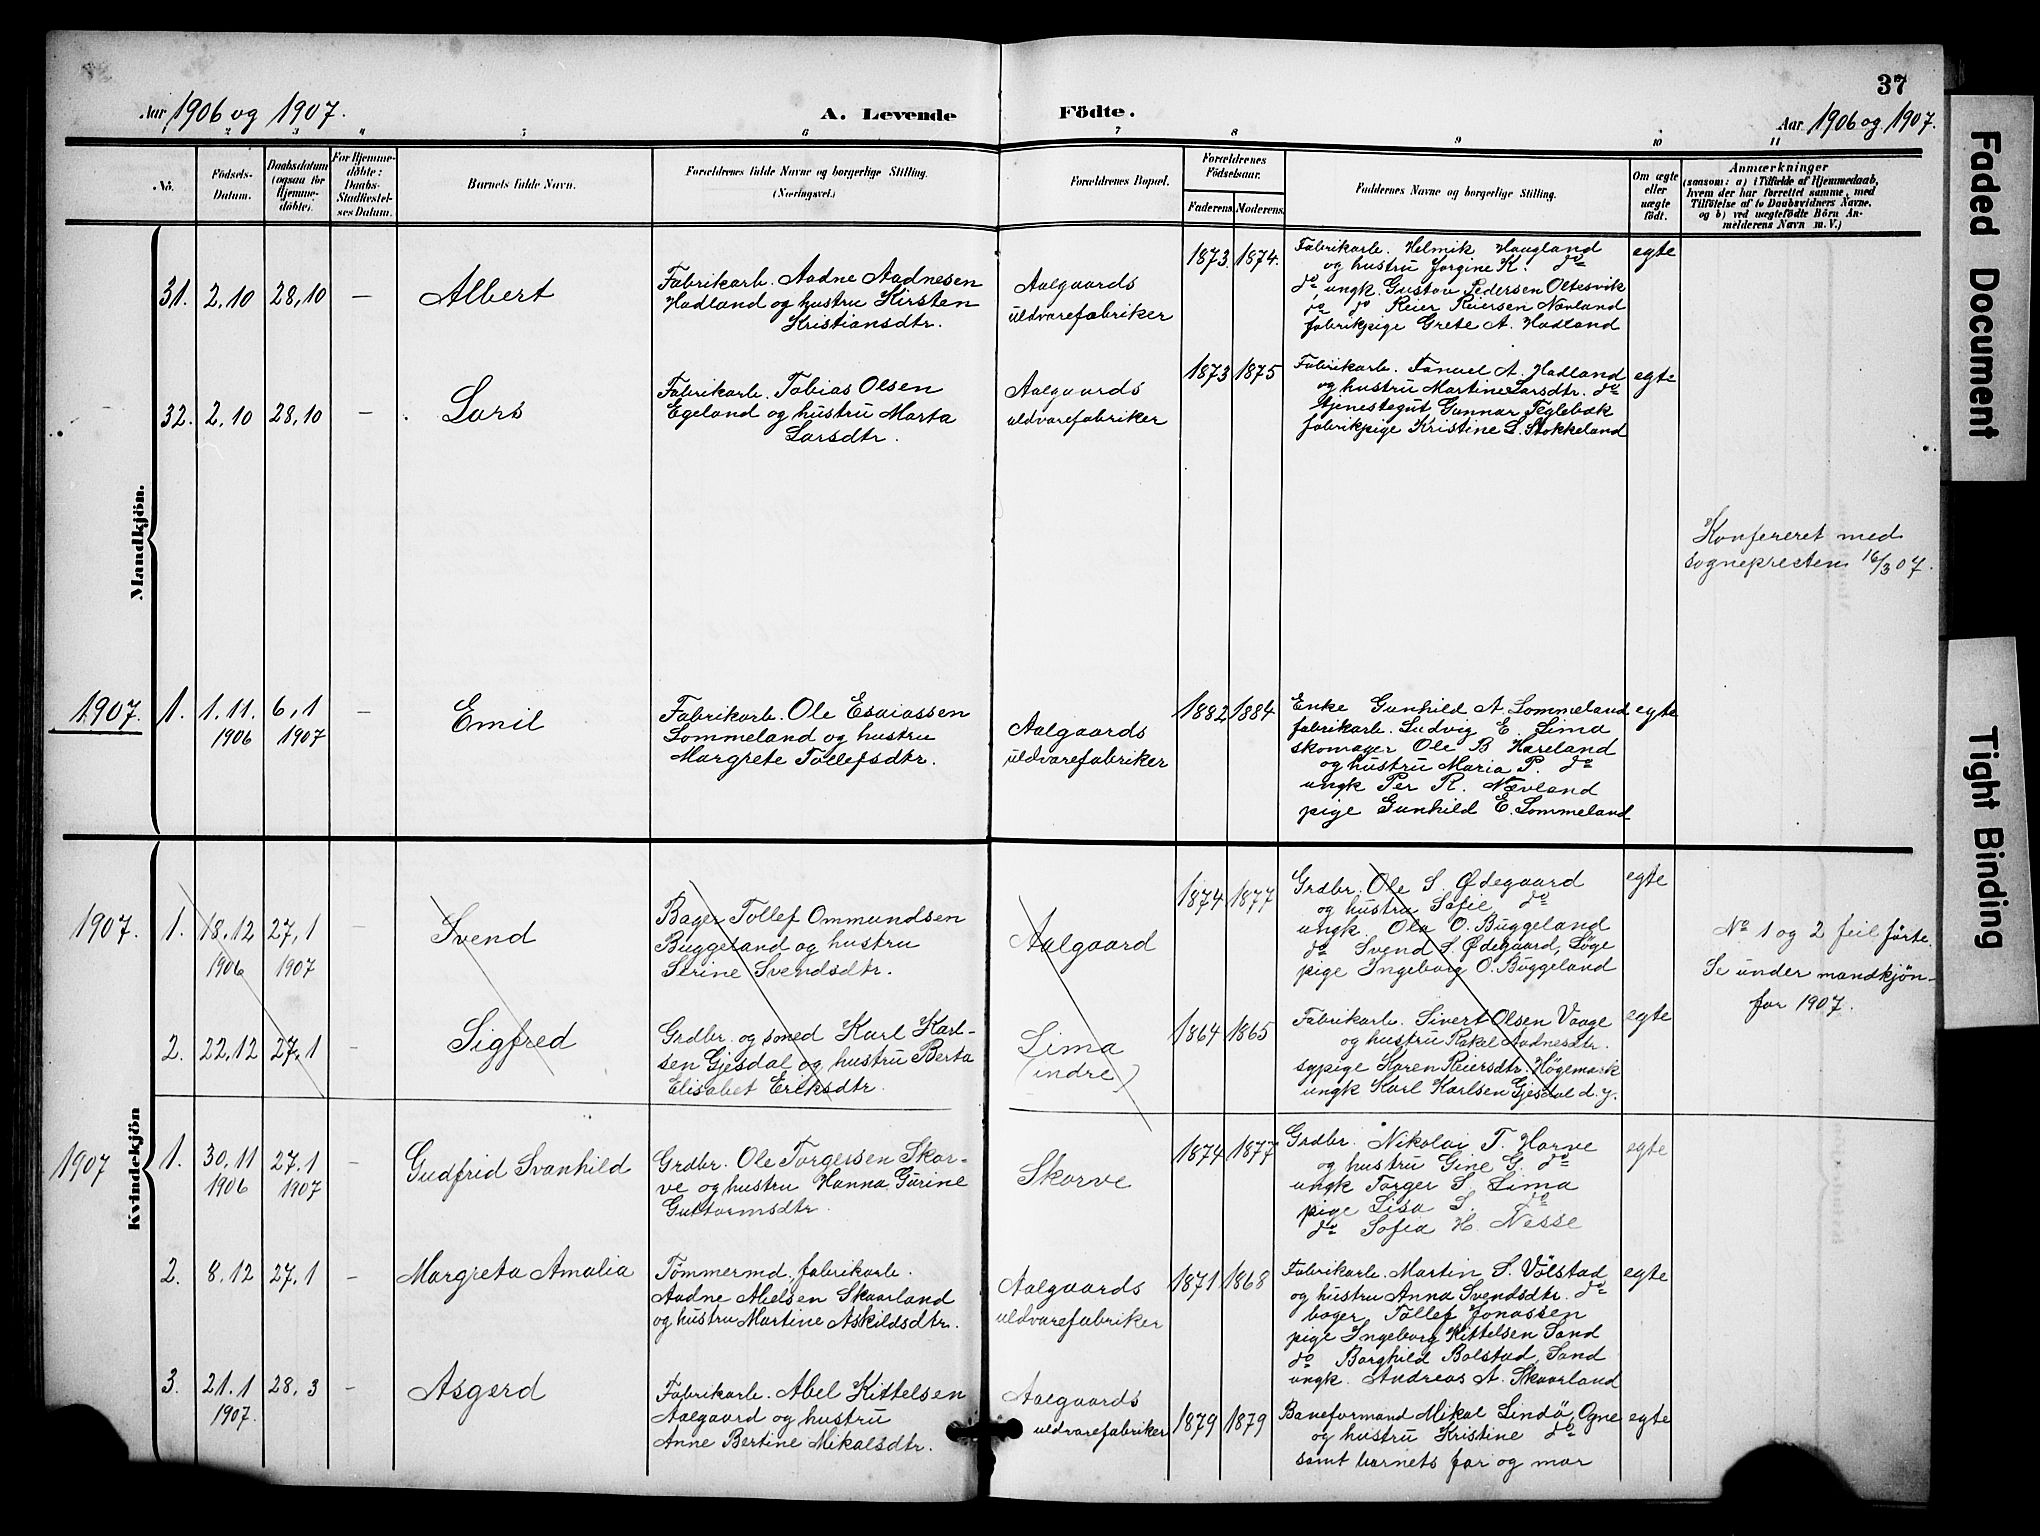 37
Aar 1906 og 1907.
A. Levende
Födte.
Aar 1906 og 1907.
2 3 4 5 6 7 8 9 10 11
No.
Födsels-
Datum.
Daabsdatum
(ogsaa for
Hjemme-
döbte).
For Hjemme-
döbte:
Daabs-
Stadfæstel-
ses Datum.
Barnets fulde Navn.
Forældrenes fulde Navne og borgerlige Stilling.
(Næringsvei.)
Forældrenes Bopæl.
Forældrenes
Födselsaar.
Faderens. Moderens.
Faddernes Navne og borgerlige Stilling.
Om ægte
eller
uægte
födt.
Anmærkninger
(saasom: a) i Tilfælde af Hjemmedaab,
hvem der har forrettet samme, med
Tilföielse af to Daabsvidners Navne,
og b) ved uægtefödte Börn An-
melderens Navn m. V.)
Mandkjön.
31. 2.10 28.10 — Albert
Fabrikarb. Aadne Aadnesen
Hadland og hustru Kirsten
Kristiansdtr.
Aalgaards
uldvarefabriker
1873. 1874.
Fabrikarb. Helmik Haugland
og hustru Jorgine K. do
do ungk. Gustav Pedersen Oltesvik
do do Reier Reiersen Nævland
fabrikpige Grete A. Hadland
egte
32. 2.10 28.10 — Lars
Fabrikarb. Tobias Olsen
Egeland og hustru Marta
Larsdtr.
Aalgaards
uldvarefabriker
1873 1875
Fabrikarb. Tanuel A. Hadland
og hustru Martine Larsdtr. do
tjenestegut Gunnar Teglebæk
fabrikpige Kristine L. Stokkeland
egte
Konfereret med
sognepresten 16/3 07.
1907. 1. 1.11. 1906 6.1 1907 — Emil
Fabrikarb. Ole Esaiassen
Lommeland og hustru
Margrete Tollefsdtr.
Aalgaards
uldvarefabriker
1882 1884
Enke Gunhild A. Lommeland
fabrikarb. Ludvig E. Lima
skomager Ole B. Hæreland
og hustru Maria P. do
ungk Per R. Nævland
pige Gunhild E. Lommeland
egte
Kvindekjön
1907. 1. 18.12 1906 27.1 1907 — Svend
Bager Tollef Ommundsen
Buggeland og hustru
Serine Svendsdtr.
Aalgaard
1874 1877
Grdbr. Ole S. Ødegaard
og hustru Sofie do
ungk. Ola O. Buggeland
do Svend S. Ødegaard, Søge
pige Ingeborg O. Buggeland
egte
No 1 og 2 feil förte.
Se under mandkjön
for 1907.
2. 22.12 27.1 — Sigfred
Grdbr. og smed Karl Karl-
sen Gjesdal og hustru Berta
Elisabet Eriksdtr.
Lima
(indre)
1864 1865
Fabrikarb. Sivert Olsen Vaage
og hustru Rakel Aadnesdtr.
sypige Karen Reiersdtr. Högemark
ungk Karl Karlsen Gjesdal d.y.
egte
1907 1. 30.11 1906 27.1 1907 Gudfrid Svanhild
Grdbr. Ole Torgersen Skor-
ve og hustru Hanna Gurine
Guttormsdtr.
Skorve
1874 1877
Grdbr. Nikolai T. Harve
og hustru Gine G. do
ungk Torger S. Lima
pige Lisa S. do
do Sofia H. Nesse
egte
2. 8.12 27.1 — Margreta Amalia
Tömmermd., fabrikarb.
Aadne Nielsen Skaarland
og hustru Martine Askildsdtr.
Aalgaards
uldvarefabriker
1871 1868
Fabrikarb. Martin S. Völstad
og hustru Anna Svendsdtr. do
bager Tollef Jonassen
pige Ingeborg Kittelsen Sand
do Borghild Bolstad, Sand
ungk. Andreas A. Skaarland
egte
3. 21.1 1907. 28.3 — Asgerd
Fabrikarb. Abel Kittelsen
Aalgaard og hustru
Anne Bertine Mikalsdtr.
Aalgaards
uldvarefabriker
1879 1879
Baneformand Mikal Lindö, Ogne
og hustru Kristine do
samt barnets far og mor
egte
Faded Document
Tight Binding